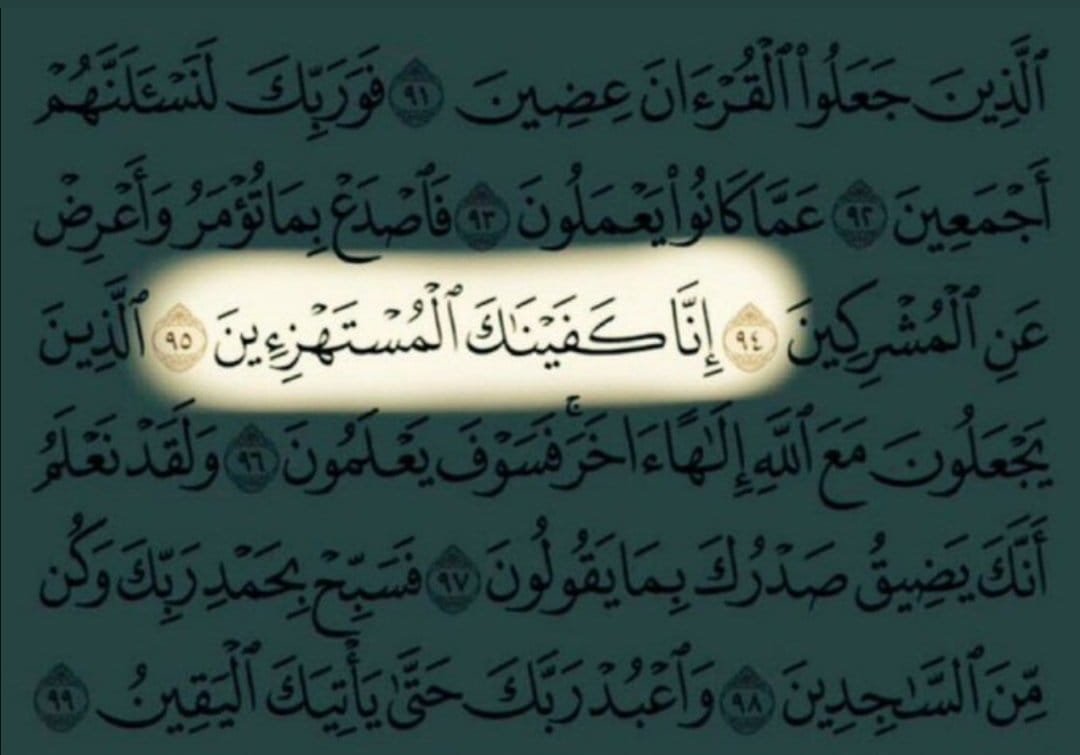 ٱلَّذِينَ جَعَلُوا۟ ٱلْقُرْءَانَ عِضِينَ ٩١ فَوَرَبِّكَ لَنَسْـَٔلَنَّهُمْ
أَجْمَعِينَ ٩٢ عَمَّا كَانُوا۟ يَعْمَلُونَ ٩٣ فَٱصْدَعْ بِمَا تُؤْمَرُ وَأَعْرِضْ
عَنِ ٱلْمُشْرِكِينَ ٩٤ إِنَّا كَفَيْنَـٰكَ ٱلْمُسْتَهْزِءِينَ ٩٥ ٱلَّذِينَ
يَجْعَلُونَ مَعَ ٱللَّهِ إِلَـٰهًا ءَاخَرَ ۚ فَسَوْفَ يَعْلَمُونَ ٩٦ وَلَقَدْ نَعْلَمُ
أَنَّكَ يَضِيقُ صَدْرُكَ بِمَا يَقُولُونَ ٩٧ فَسَبِّحْ بِحَمْدِ رَبِّكَ وَكُن
مِّنَ ٱلسَّـٰجِدِينَ ٩٨ وَٱعْبُدْ رَبَّكَ حَتَّىٰ يَأْتِيَكَ ٱلْيَقِينُ ٩٩